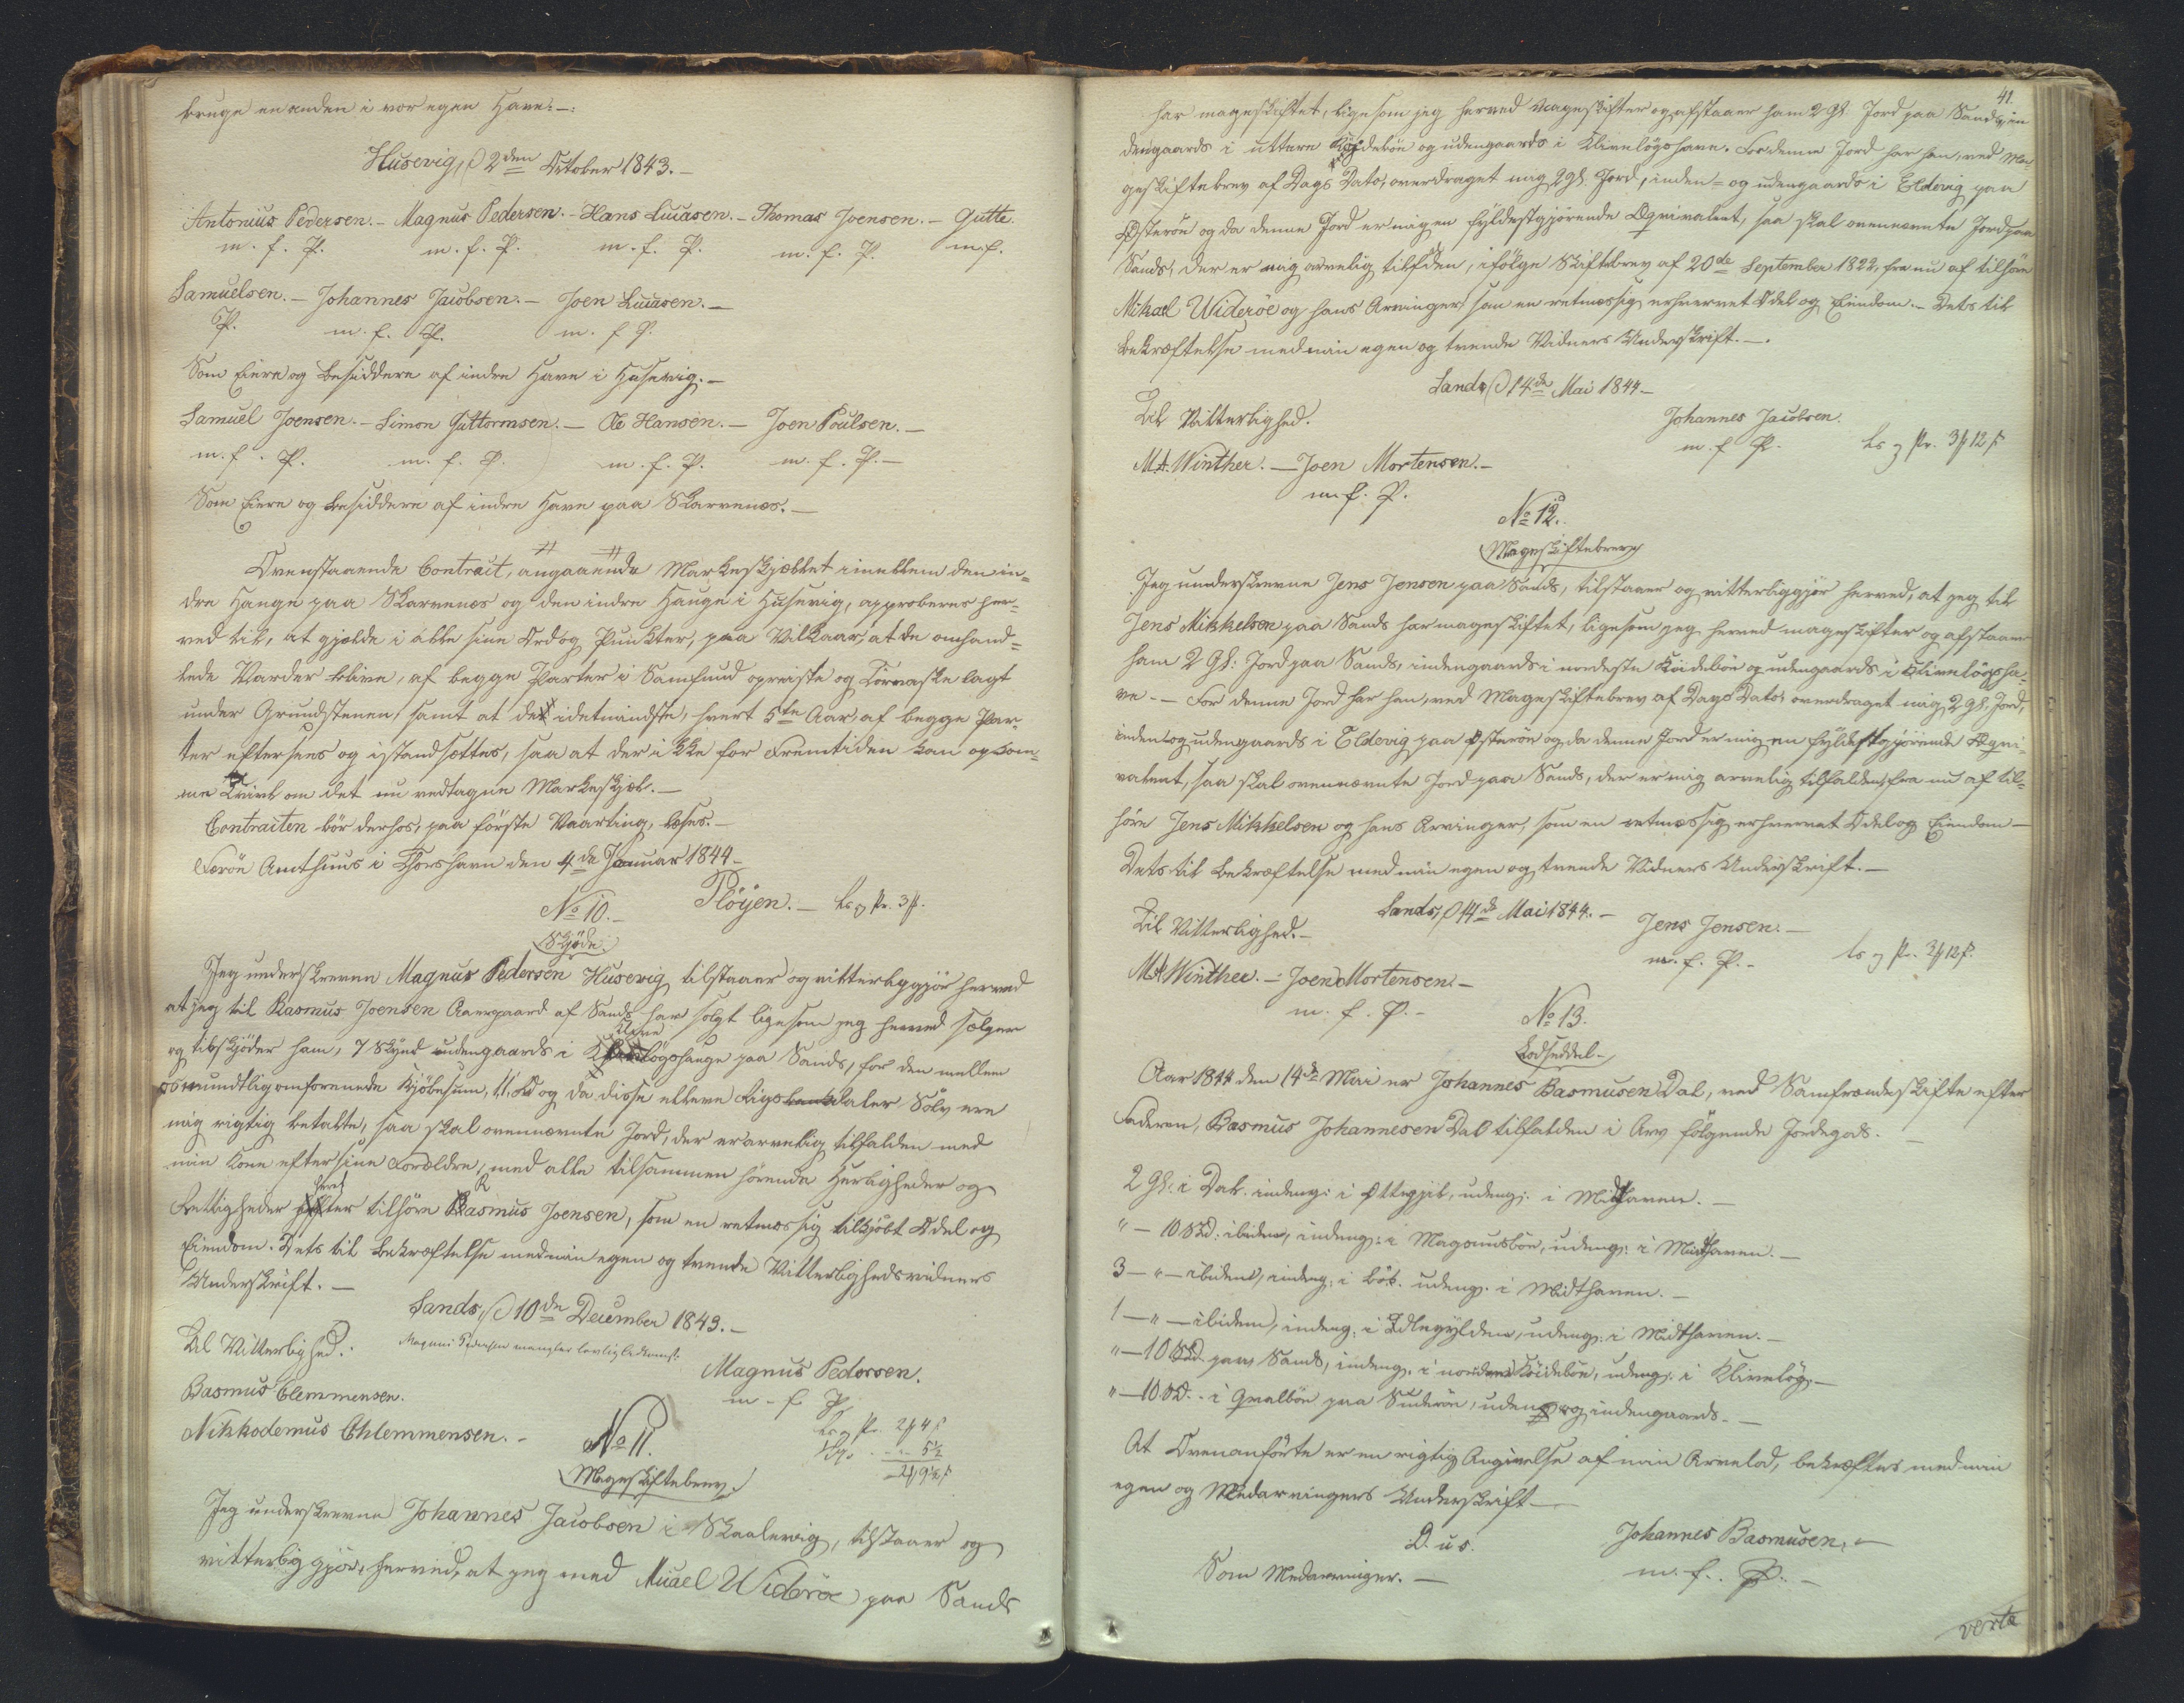 bruge en anden i vor egen Have.—.
Husevig, d 2den October 1843.—
Antonius Pedersen.— Magnus Pedersen.— Hans Lucasen.— Thomas Joensen.— Gutte
m. f. P. m. f. P. m. f. P. m. f. P. m. f.
Samuelsen.— Johannes Jacobsen.— Joen Lucasen.—
P. m. f. P. m. f P.
Som Eiere og Besiddere af indre Have i Husevig.—
Samuel Joensen.— Simon Guttormsen.— Ole Hansen.— Joen Poulsen.—
m. f. P. m. f. P. m. f. P. m. f. P.—
Som Eiere og Besiddere af indre Have paa Skarvenæs.—
Ovenstaaende Contract, angaaende Markeskjællet imellem den in=
dre Hauge paa Skarvenæs og den indre Hauge i Husevig, approberes her=
ved til, at gjælde i alle sine Ord og Punkter, paa Vilkaar, at de omhand=
lede Varder blive, af begge Parter i Samfund opreiste og Törvaske lagt
under Grundstenen, samt at de idetmindste, hvert 5te Aar, af begge Par=
ter eftersees og istandsættes, saa at der ikke for Fremtiden kan opkom=
me Tvivl om det nu vedtagne Markeskjæl.—
Contracten bör derhos, paa förste Vaarting, læses.—
Færöe Amthuus i Thorshavn den 4de Januar 1844—
Plöyen.— Ls og Pr. 3 β.
No 10.—
Skjöde
Jeg underskreven Magnus Pedersen Husevig tilstaaer og vitterliggjör herved
at jeg til Rasmus Joensen Aaergaard af Sands har solgt ligesom jeg herved sælger
Klive
og tilskjöder ham, 7 Skind udengaards i lögshauge paa Sands, for den mellem
os mundtlig omforenede Kjöbesum, 11, Rd og da disse elleve Rigsbankdaler Sölv ere
mig rigtig betalte, saa skal ovennævnte Jord, der er arvelig tilfalden med
min Kone efter sine Forældre, med alle tilsammen hörende Herligheder og
heref
Rettigheder ter tilhöre Rasmus Joensen, som en retmæssig tilkjöbt Odel og
Eiendom. Dets til Bekræftelse med min egen og trende Vitterlighedsvidners
Underskrift.—
Sands, d 10de December 1843.—
Til Vitterlighed.: Magnus Pedersen mangler lovlig Adkomst.
Magnus Pedersen.
Rasmus Clemmensen. m - f P
Nikkodemus Chlemmensen.— Ls og Pr. 2 4 β
No 11. 5½
Mageskiftebrev. 2 9½ β
Jeg underskrevne Johannes Jacobsen i Skaalevig, tilstaaer og
vitterlig gjör, herved, at jeg med Micael Wideröe paa Sands
41.
har mageskiftet, ligesom jeg herved mageskifter og afstaaer ham 2 Gl. Jord paa Sands, in
dengaards i uttere Köjdeböe og udengaards i Klivelögshave. For denne Jord har han, ved Ma=
geskiftebrev af Dags Dato, overdraget mig 2 Gl. Jord, inden= og udengaards i Eldevig paa
Österöe og da denne Jord er mig en fyldestgjörende Æqvivalent, saa skal ovennævnte Jord paa
Sands, der er mig arvelig tilfalden, ifölge Skiftebrev af 20de September 1822, fra nu af tilhöre
Mikael Wideröe og hans Arvinger, som en retmæssig erhvervet Odel og Eiendom.— Dets til
Bekræftelse med min egen og trende Vidners Underskrift.—.
Sands, d 14de Mai 1844—
Til Vitterlighed. Johannes Jacobsen.
m. f P. Ls og Pr. 3 12 β
M.A. Winther.— Joen Mortensen.—
m. f. P.
No 12.
Mageskiftebrev
Jeg underskrevne Jens Jensen paa Sands, tilstaaer og vitterliggjör herved, at jeg til
Jens Mikkelsen paa Sands har mageskiftet, ligesom jeg herved mageskifter og afstaaer
ham 2 Gl: Jord paa Sands, indengaards i nordeste Köideböe og udengaards i Klivelögsha=
ve.— For denne Jord har han, ved Mageskiftebrev af Dags Dato, overdraget mig 2 Gl. Jord,
inden og udengaards i Eldevig paa Österöe og da denne Jord er mig en fyldestgjörende Æqvi=
valent, saa skal ovennævnte Jord paa Sands, der er mig arvelig tilfalden, fra nu af til=
höre Jens Mikkelsen og hans Arvinger, som en retmæssig erhvervet Odel og Eiendom—
Dets til Bekræftelse med min egen og trende Vidners Underskrift.—
Sands, d 14de Mai 1844.—
Til Vitterlighed.— Jens Jensen.—
m. f. P.— Ls og Pr. 3 12 β.
M.A. Winther.— Joen Mortensen.—
m. f. P.—
No 13.
Lodseddel—
Aar 1844 den 14de Mai er Johannes Rasmusen Dal, ved Samfrændeskifte efter
Faderen, Rasmus Johannesen Dal tilfalden i Arv fölgende Jordegods.—
2 Gl: i Dal. indeng: i Ottegjil, udeng: i Midthaven.—
"— 10 Skd: ibidem, indeng: i Magnusböe, udeng: i Midthaven.—
3 — " — ibidem, indeng: i Böl. udeng. i Midthaven.—
1 — " — ibidem, indeng: i Edlegylden, udeng: i Midthaven.—
"— 10 Skd paa Sands, indeng. i nordere Köideböe, udeng: i Klivelög.—
"— 10 Skd. i Qvalböe paa Suderöe, udeng og indengaards.—
At Ovenanförte er en rigtig Angivelse af min Arvelod, bekræftes med min
egen og Medarvingers Underskrift—
D. u s. Johannes Rasmusen.—
Som Medarvinger.— m. f.. P.—
verte